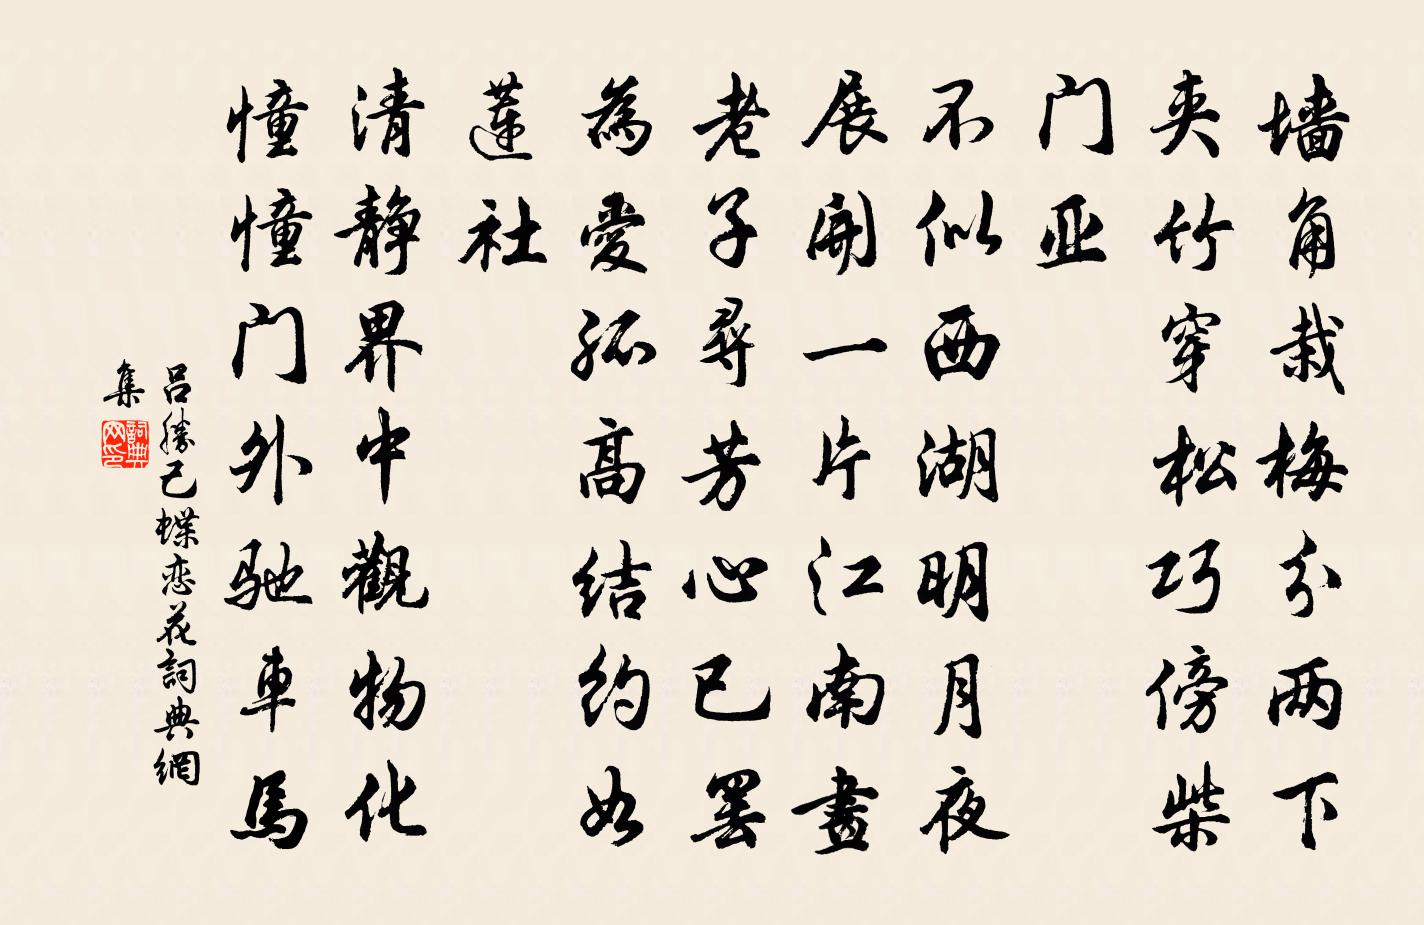 墙角栽梅分两下
夹竹穿松巧傍柴
门亚
不似西湖明月夜
展開一片江南畫
老子尋芳心已罢
為愛孤高结约如
莲社
清静界中觀物化
憧憧门外驰車馬
吕勝己蝶恋花詞典網
集
詞典网印